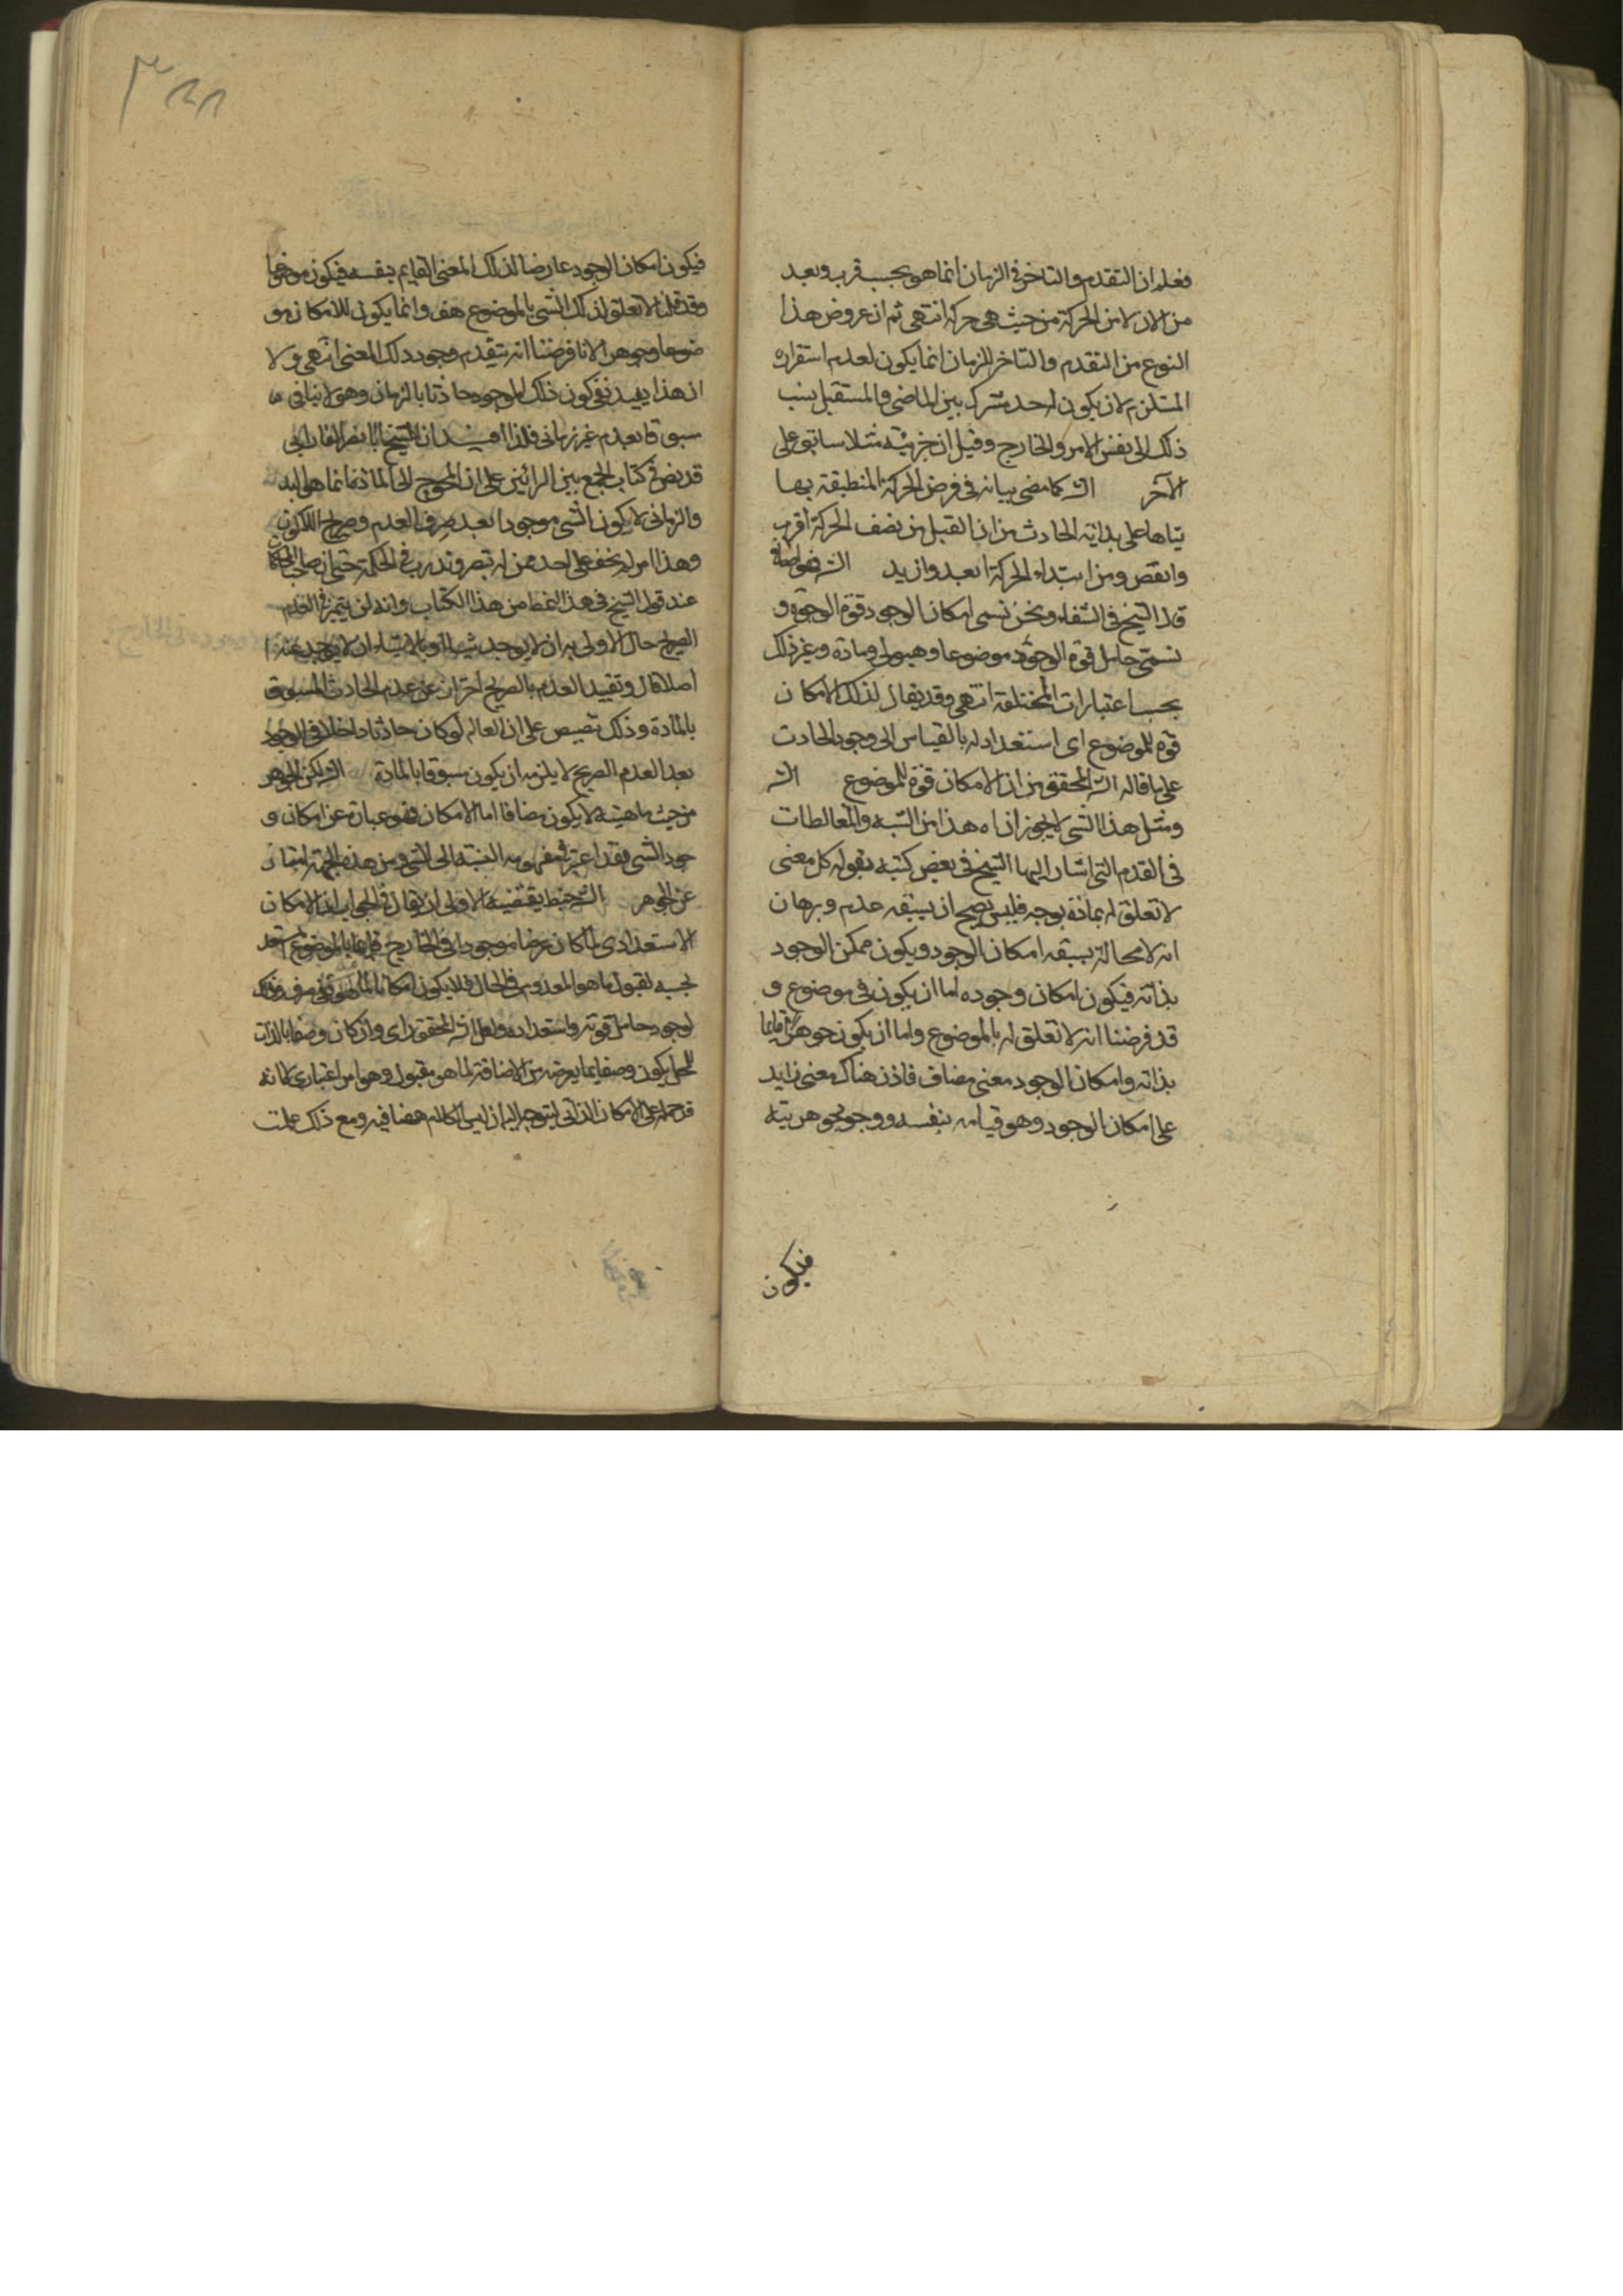 فعلم ان التقدم والتاخر فى الزمان انما هو بحسب قرب وبعد
من الان لا من الحركة من حيث هى حركة انتهى ثم ان عروض هذا
النوع من التقدم والتاخر للزمان انما يكون لعدم استقراره
المستلزم لان يكون له حد مشترك بين الماضى والمستقبل ينسب
ذلك الى نفس الامر والخارج وقيل ان جزئيه مثلا سابق على
الآخر الشـ كما مضى بيانه فى فرض الحركة المنطبقة بها
على بداية الحادث من ان القبل من نصف الحركة اقرب
وانقص ومن ابتداء الحركة ابعد وازيد الشـ
قال الشيخ فى الشفاء ونحن نسمى امكان الوجود قوة الوجود و
نسمى حامل قوة الوجود موضوعا وهيولى ومادة وغير ذلك
بحسب اعتبارات المختلفة انتهى وقد يقال لذلك الامكان
قوة للموضوع اى استعداد له بالقياس الى وجود الحادث
على ما قاله الشـ المحقق من ان الامكان قوة للموضوع الشـ
ومثل هذا الشى لا يجوز ان اه هذا من الشبه والمغالطات
فى القدم التى اشار اليها الشيخ فى بعض كتبه بقوله كل معنى
لا تعلق له بمادة بوجه فليس يصح ان يسبقه عدم وبرهان
انه لا محالة يسبقه امكان الوجود ويكون ممكن الوجود
بذاته فيكون امكان وجوده اما ان يكون فى موضوع و
قد فرضنا انه لا تعلق له بالموضوع واما ان يكون جوهرا قايما
بذاته وامكان الوجود معنى مضاف فاذن هناك معنى زايد
على امكان الوجود وهو قيامه بنفسه ووجود جوهريته
فيكون
فيكون امكان الوجود عارضا لذلك المعنى القايم بنفسه فيكون موضوعا
وقد قلنا لا تعلق لذلك الشى بالموضوع هف وانما يكون للامكان مو
ضوعا وجوهرا لانا فرضنا انه يتقدم وجود ذلك المعنى انتهى ولا
ان هذا يفيد نفى كون ذلك الموجود حادثا بالزمان وهو لا ينافى
مسبوقا بعدم غير زمانى فلذا الشيخ ابا نصر الفارابى
قد نص فى كتاب الجمع بين الرائين على ان المحوج الى المادة انما هو
والزمانى لا يكون الشى موجودا بعد صرف العدم وصريح اللاكون
وهذا امر لم يخف على احد ممن له تبصر وتدرب فى الحكمة حتى ان صاحب المحاكمات
عند قول الشيخ فى هذا النمط من هذا الكتاب وانه لن يتميز فى العدم
الصريح حال الاولى به ان لا يوجد شيئا او بالاشياء ان لا يوجد عنه
اصلا قال وتقييد العدم بالصريح احتراز عن عدم الحادث المسبوق
بالمادة وذلك تنصيص على ان العالم لو كان حادثا داخلا فى الوجود
بعد العدم الصريح لا يلزمه ان يكون مسبوقا بالمادة الشـ لكن الجوهر
من حيث ماهيته لا يكون مضافا اما الامكان فهو عبارة عن امكان و
جود الشى فقد اعتبر فى مفهومه النسبة الى الشى ومن هذه الجهة امتاز
عن الجوهر الشـ الاولى ان يقال فى الجواب ان الامكان
الاستعدادى لما كان عرضا موجودا فى الخارج قايما بالموضوع
بحسبه لقبول ما هو المعدوم فى الحال فلا يكون امكانا
لوجود حامل قوته واستعداده ولعل الشـ المحقق راى وان كان وصفا بالذات
للمحل يكون وصفا بما يعرضه من الاضافة لما هو مقبول وهو امر اعتبارى
قد حمله على الامكان الذاتى ليتوجه اليه ان ليس الكلام ههنا فيه ومع ذلك علمت